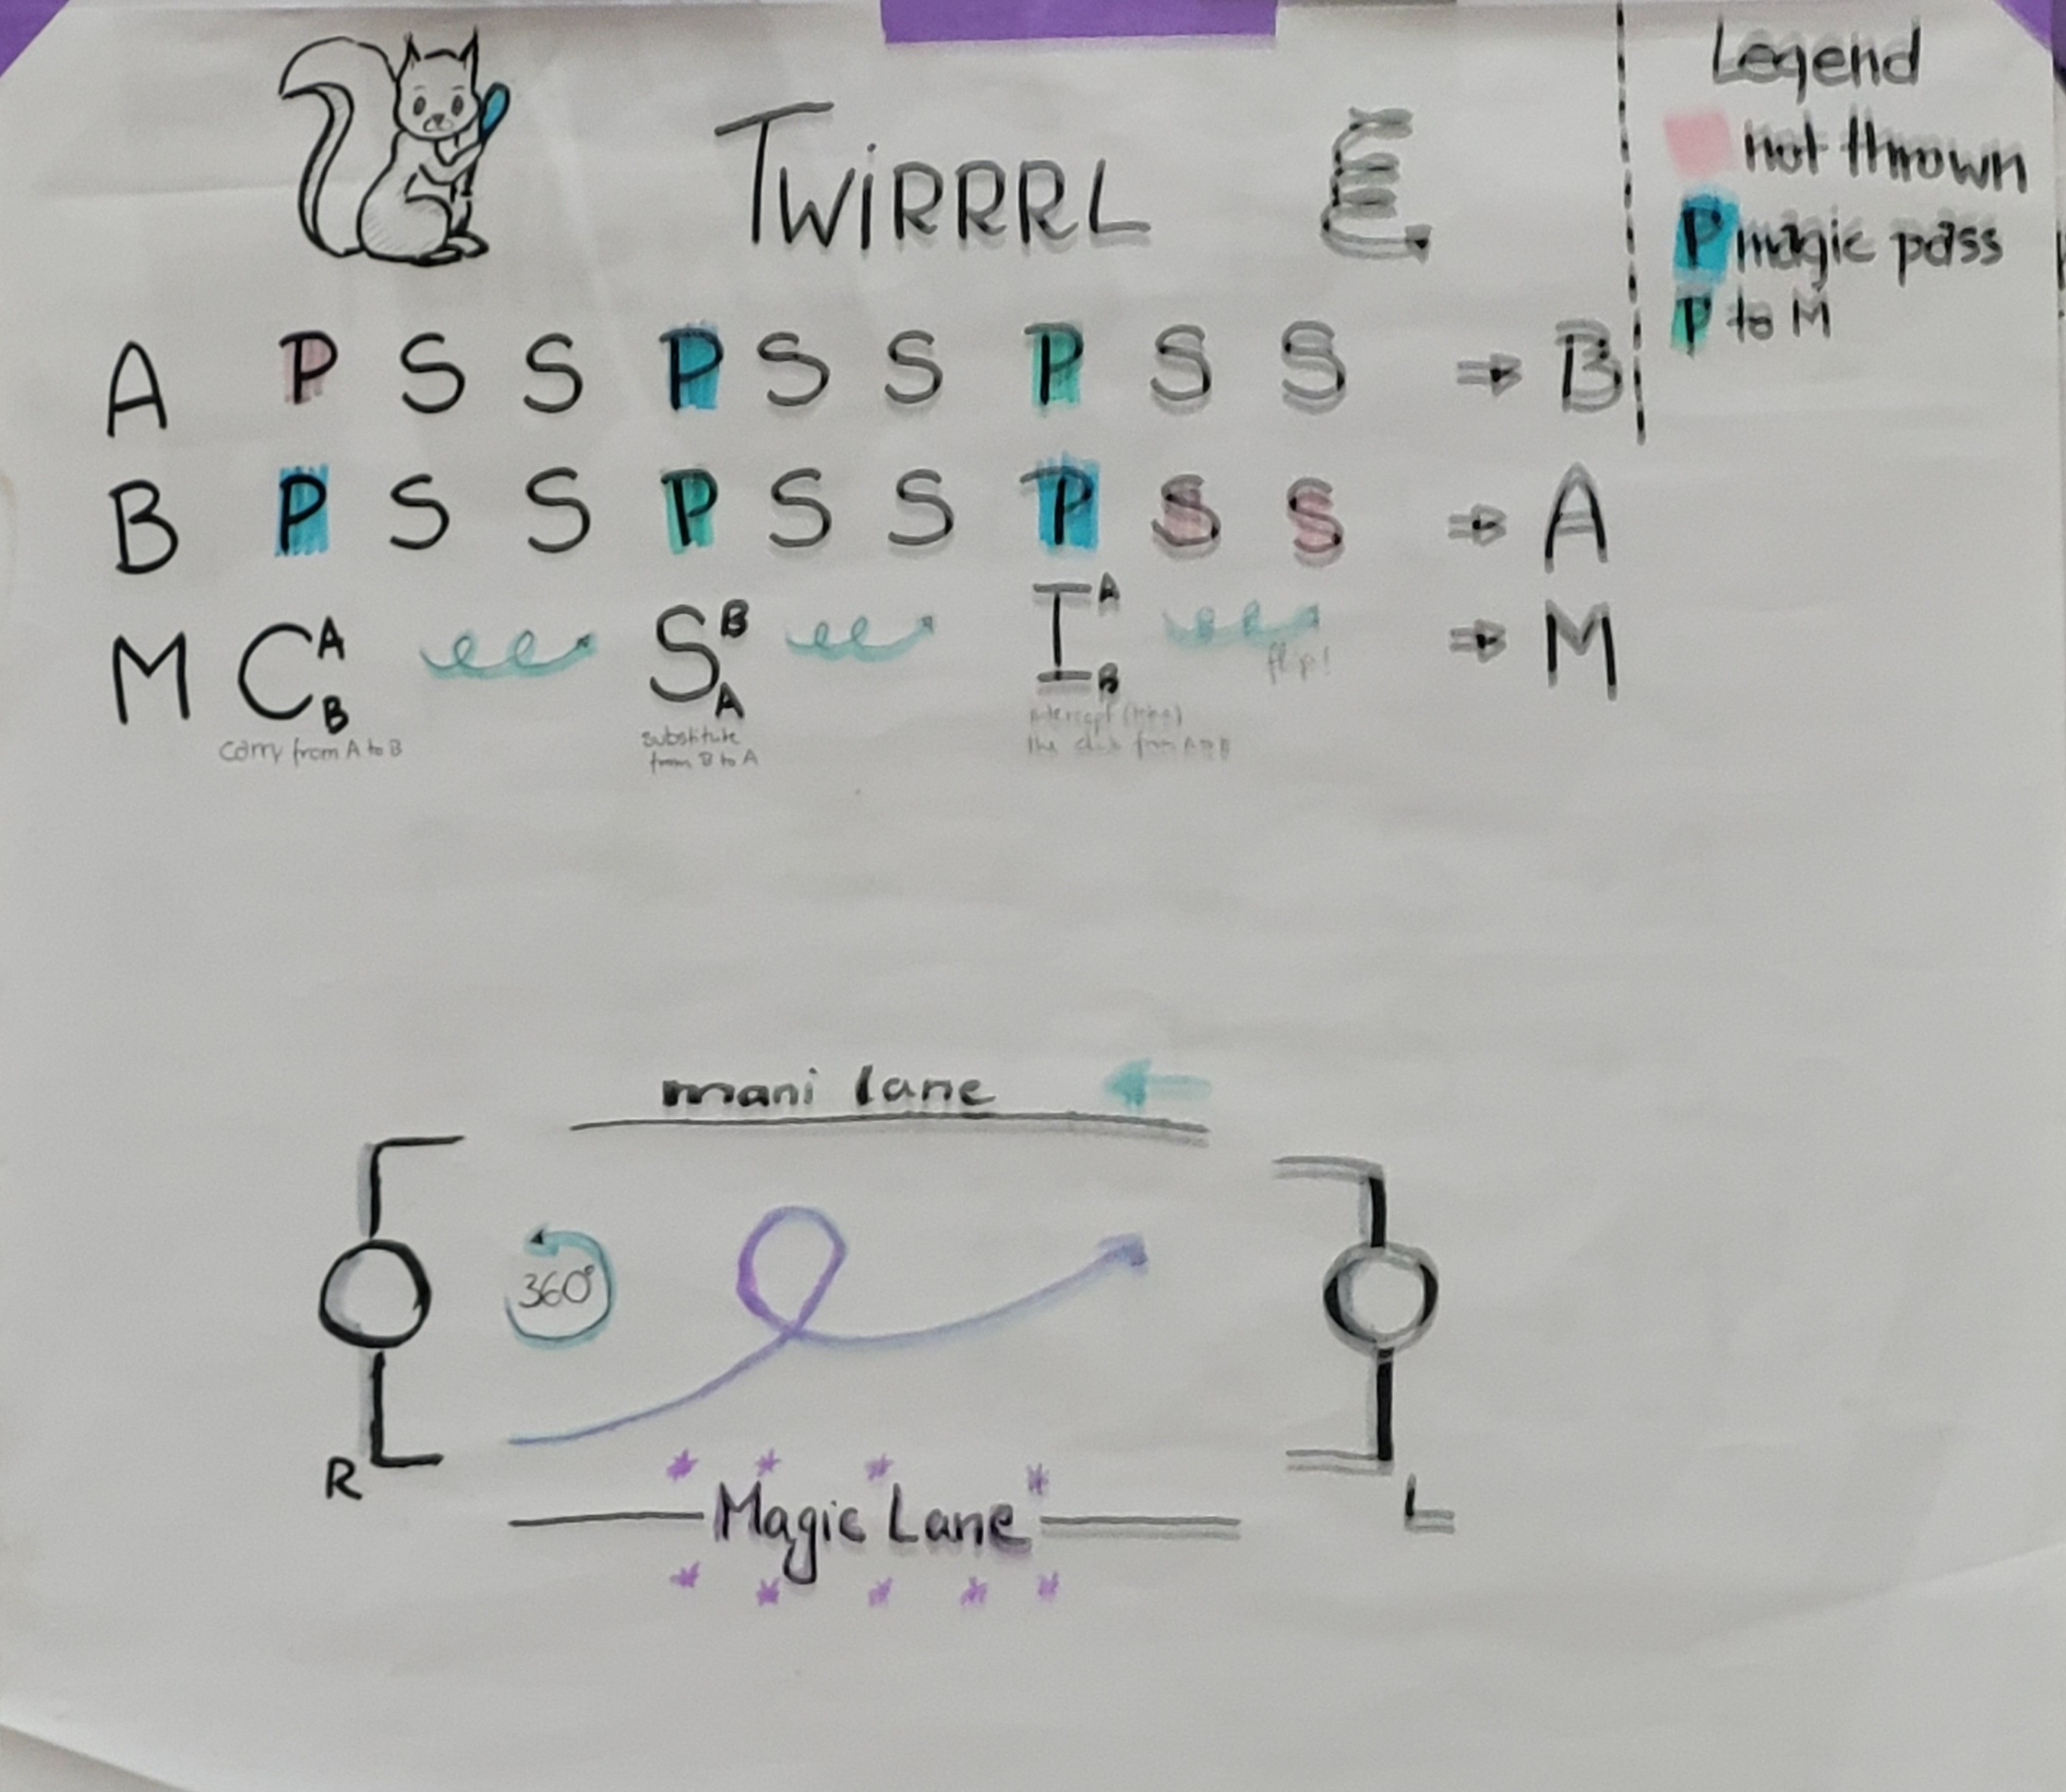 TWiRRRL
Legend
not thrown
P magic pass
P to M
A P S S P S S P S S ⇒ B
B P S S P S S P S S ⇒ A
M C A B S B A I A B ⇒ M
flip!
carry from A to B
substitute
from B to A
intercept
the club from A to B
mani lane
360°
R
L
Magic Lane